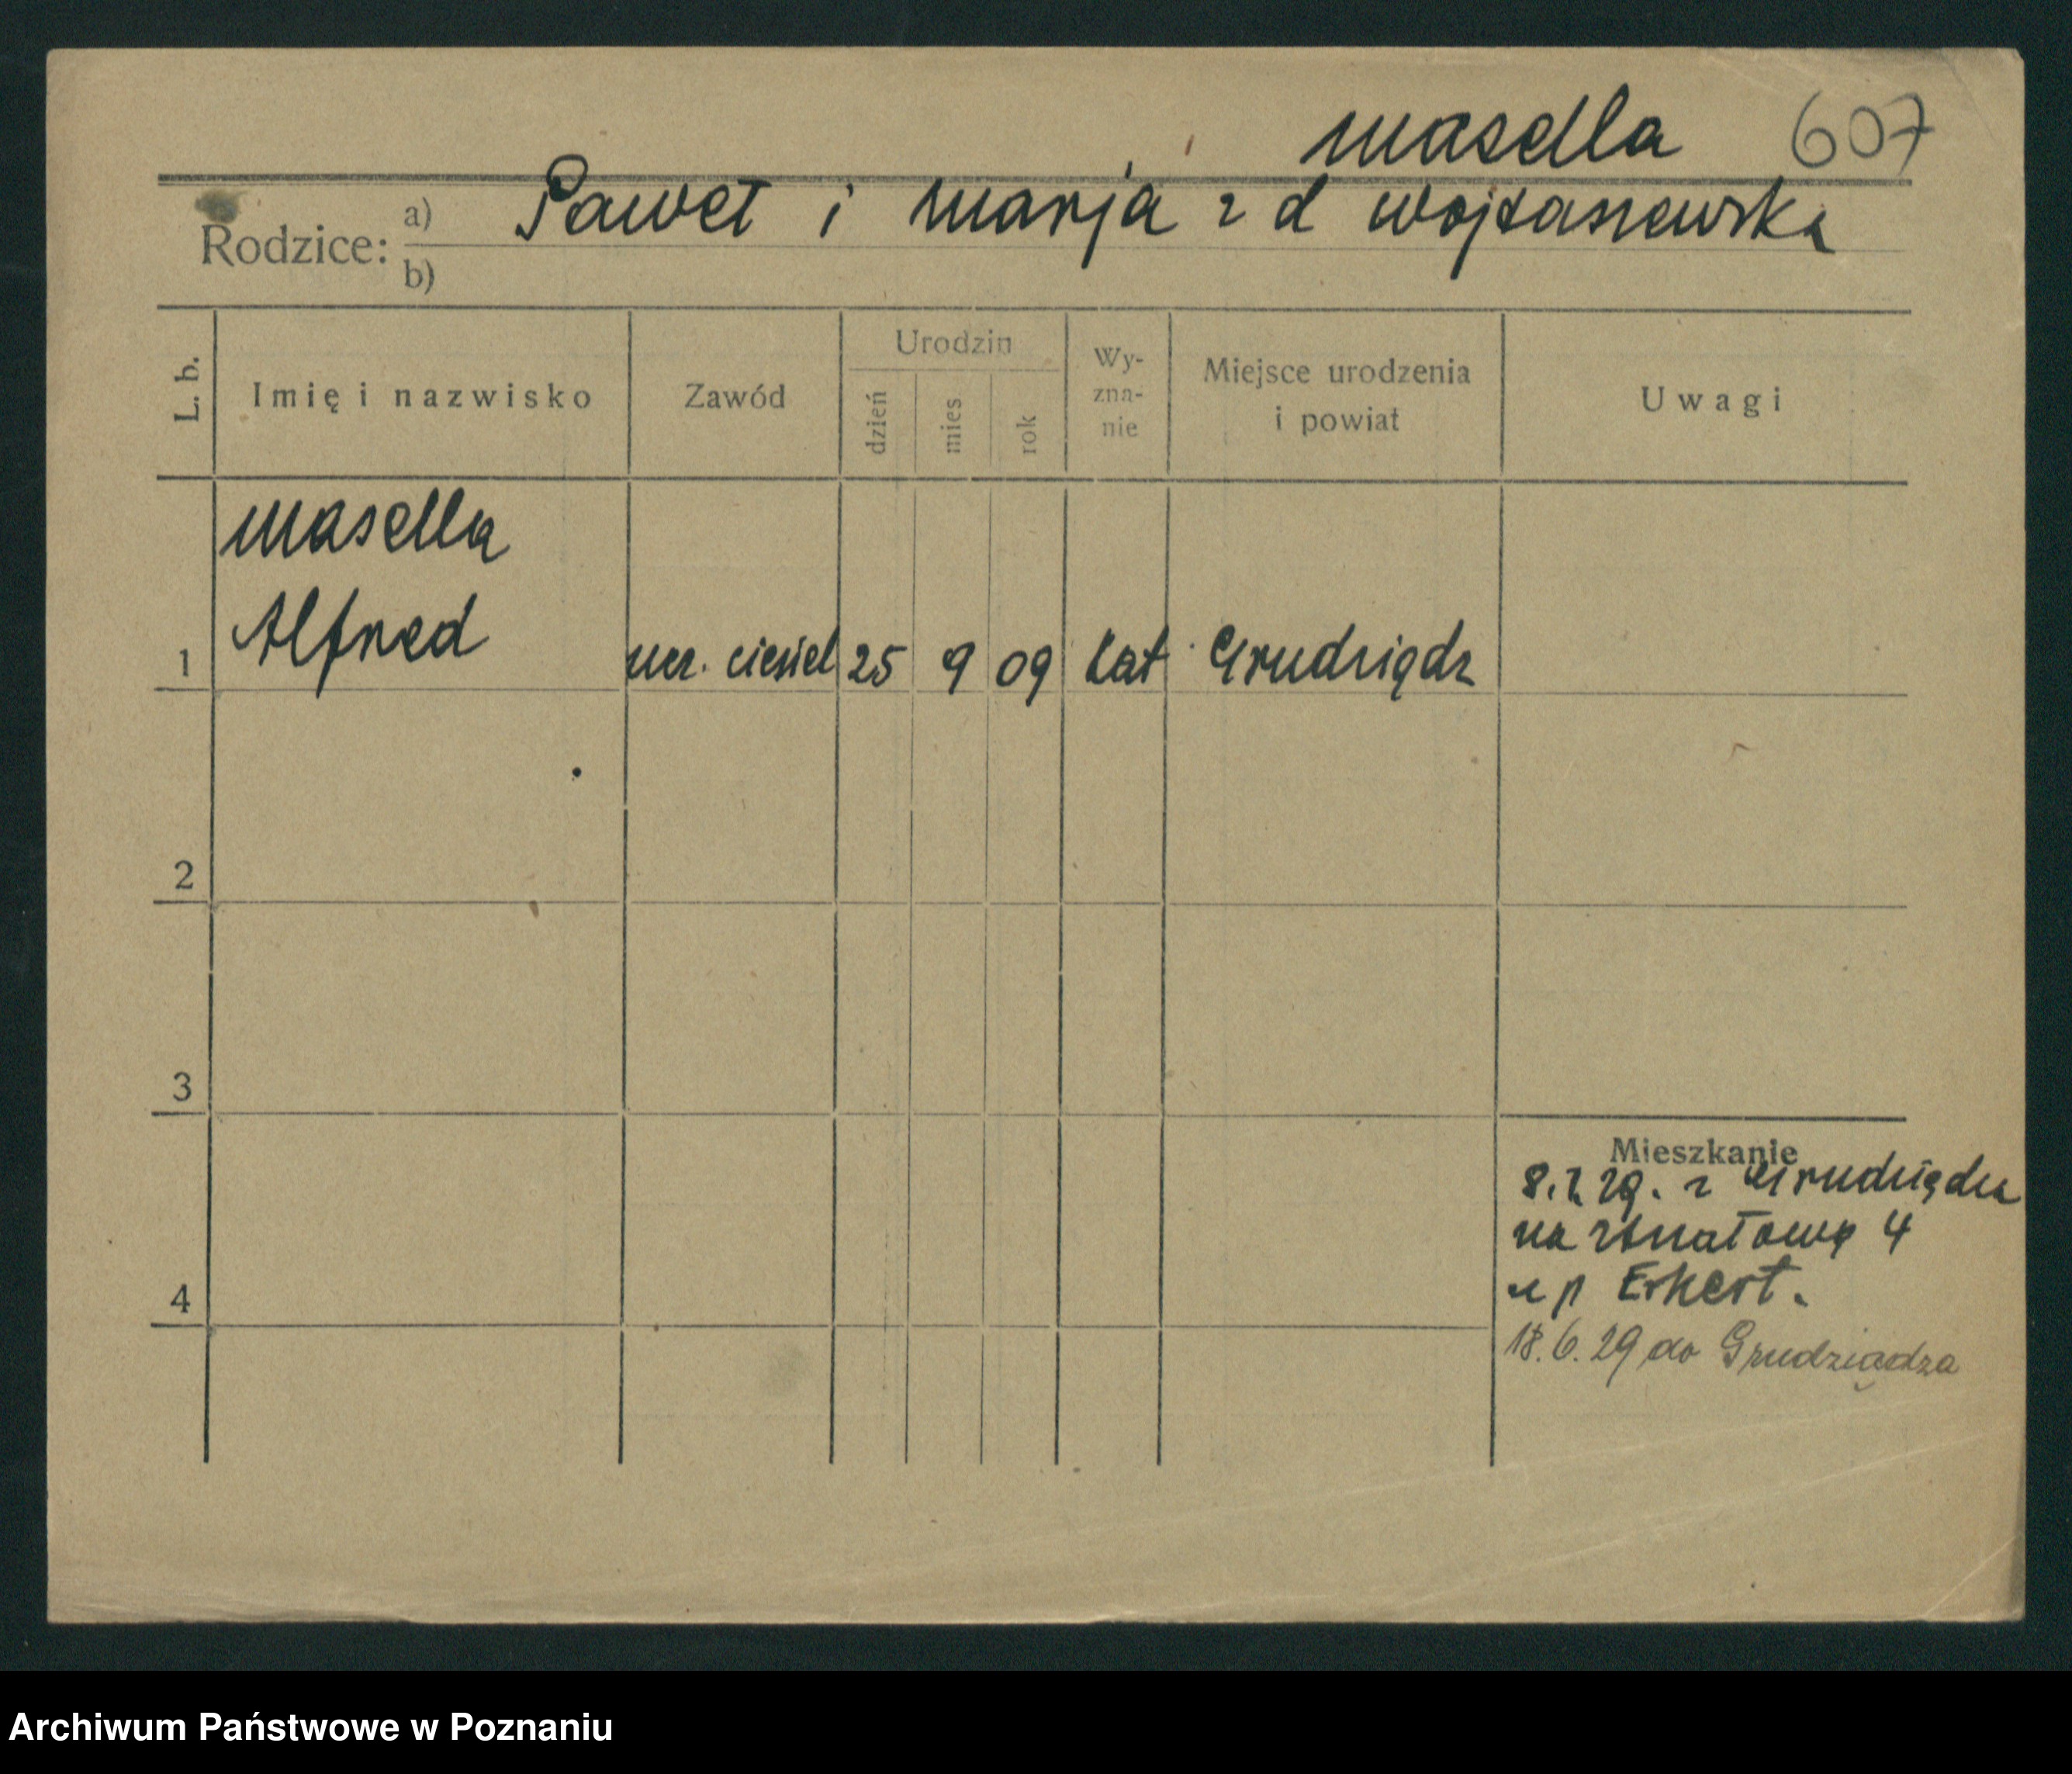 Masella 607
Rodzice: a) Paweł i Marja z d Wojtaszewska
b)
L. b.
Imię i nazwisko
Zawód
Urodzin
dzień
mies
rok
Wy-
zna-
nie
Miejsce urodzenia
i powiat
Uwagi
Masella
Alfred
1 ucz. ciesiel 25 9 09 kat Grudziądz
2
3
4
Mieszkanie
29. z Grudziądza
na 4
u p Erkert.
18.6.29 do Grudziądza
Archiwum Państwowe w Poznaniu